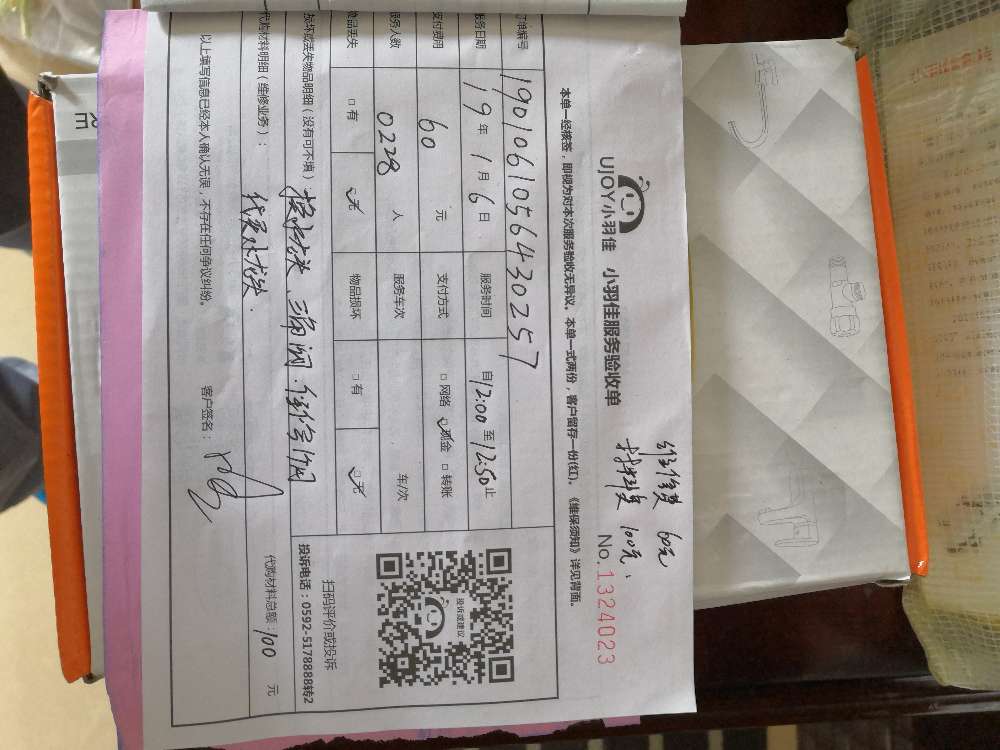 UJOY小羽佳 小羽佳服务验收单
维修费 60元
材料费 100元、
No.1324023
本单一经核签，即视为对本次服务验收无异议。本单一式两份，客户留存一份(红)。《维保须知》详见背面。
订单编号 1901061056430257
服务日期 19年1月6日 服务时间 自12:00至12:50止
支付费用 60 元 支付方式 □网络 □现金 □转账
服务人数 0228 人 服务车次 车/次
物品丢失 □有 □无 物品损坏 □有 □无
损坏或丢失物品明细（没有可不填）
代购材料明细（维修业务）：
代购材料总额：100 元
以上填写信息已经本人确认无误，不存在任何争议纠纷。 客户签名：
投诉或建议
扫码评价或投诉
投诉电话：0592-5178888转2